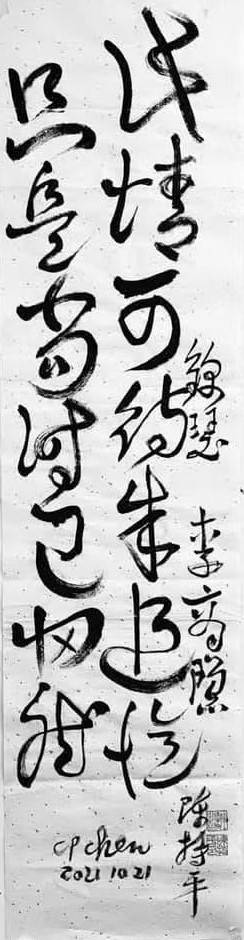 此情可待成追憶
只是當時已惘然
錦瑟 李商隱
陳持平
cp chen
2021 10 21